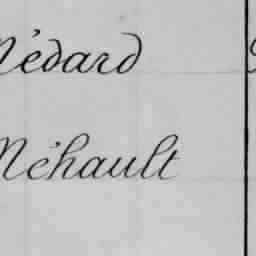 Médard
Méhault